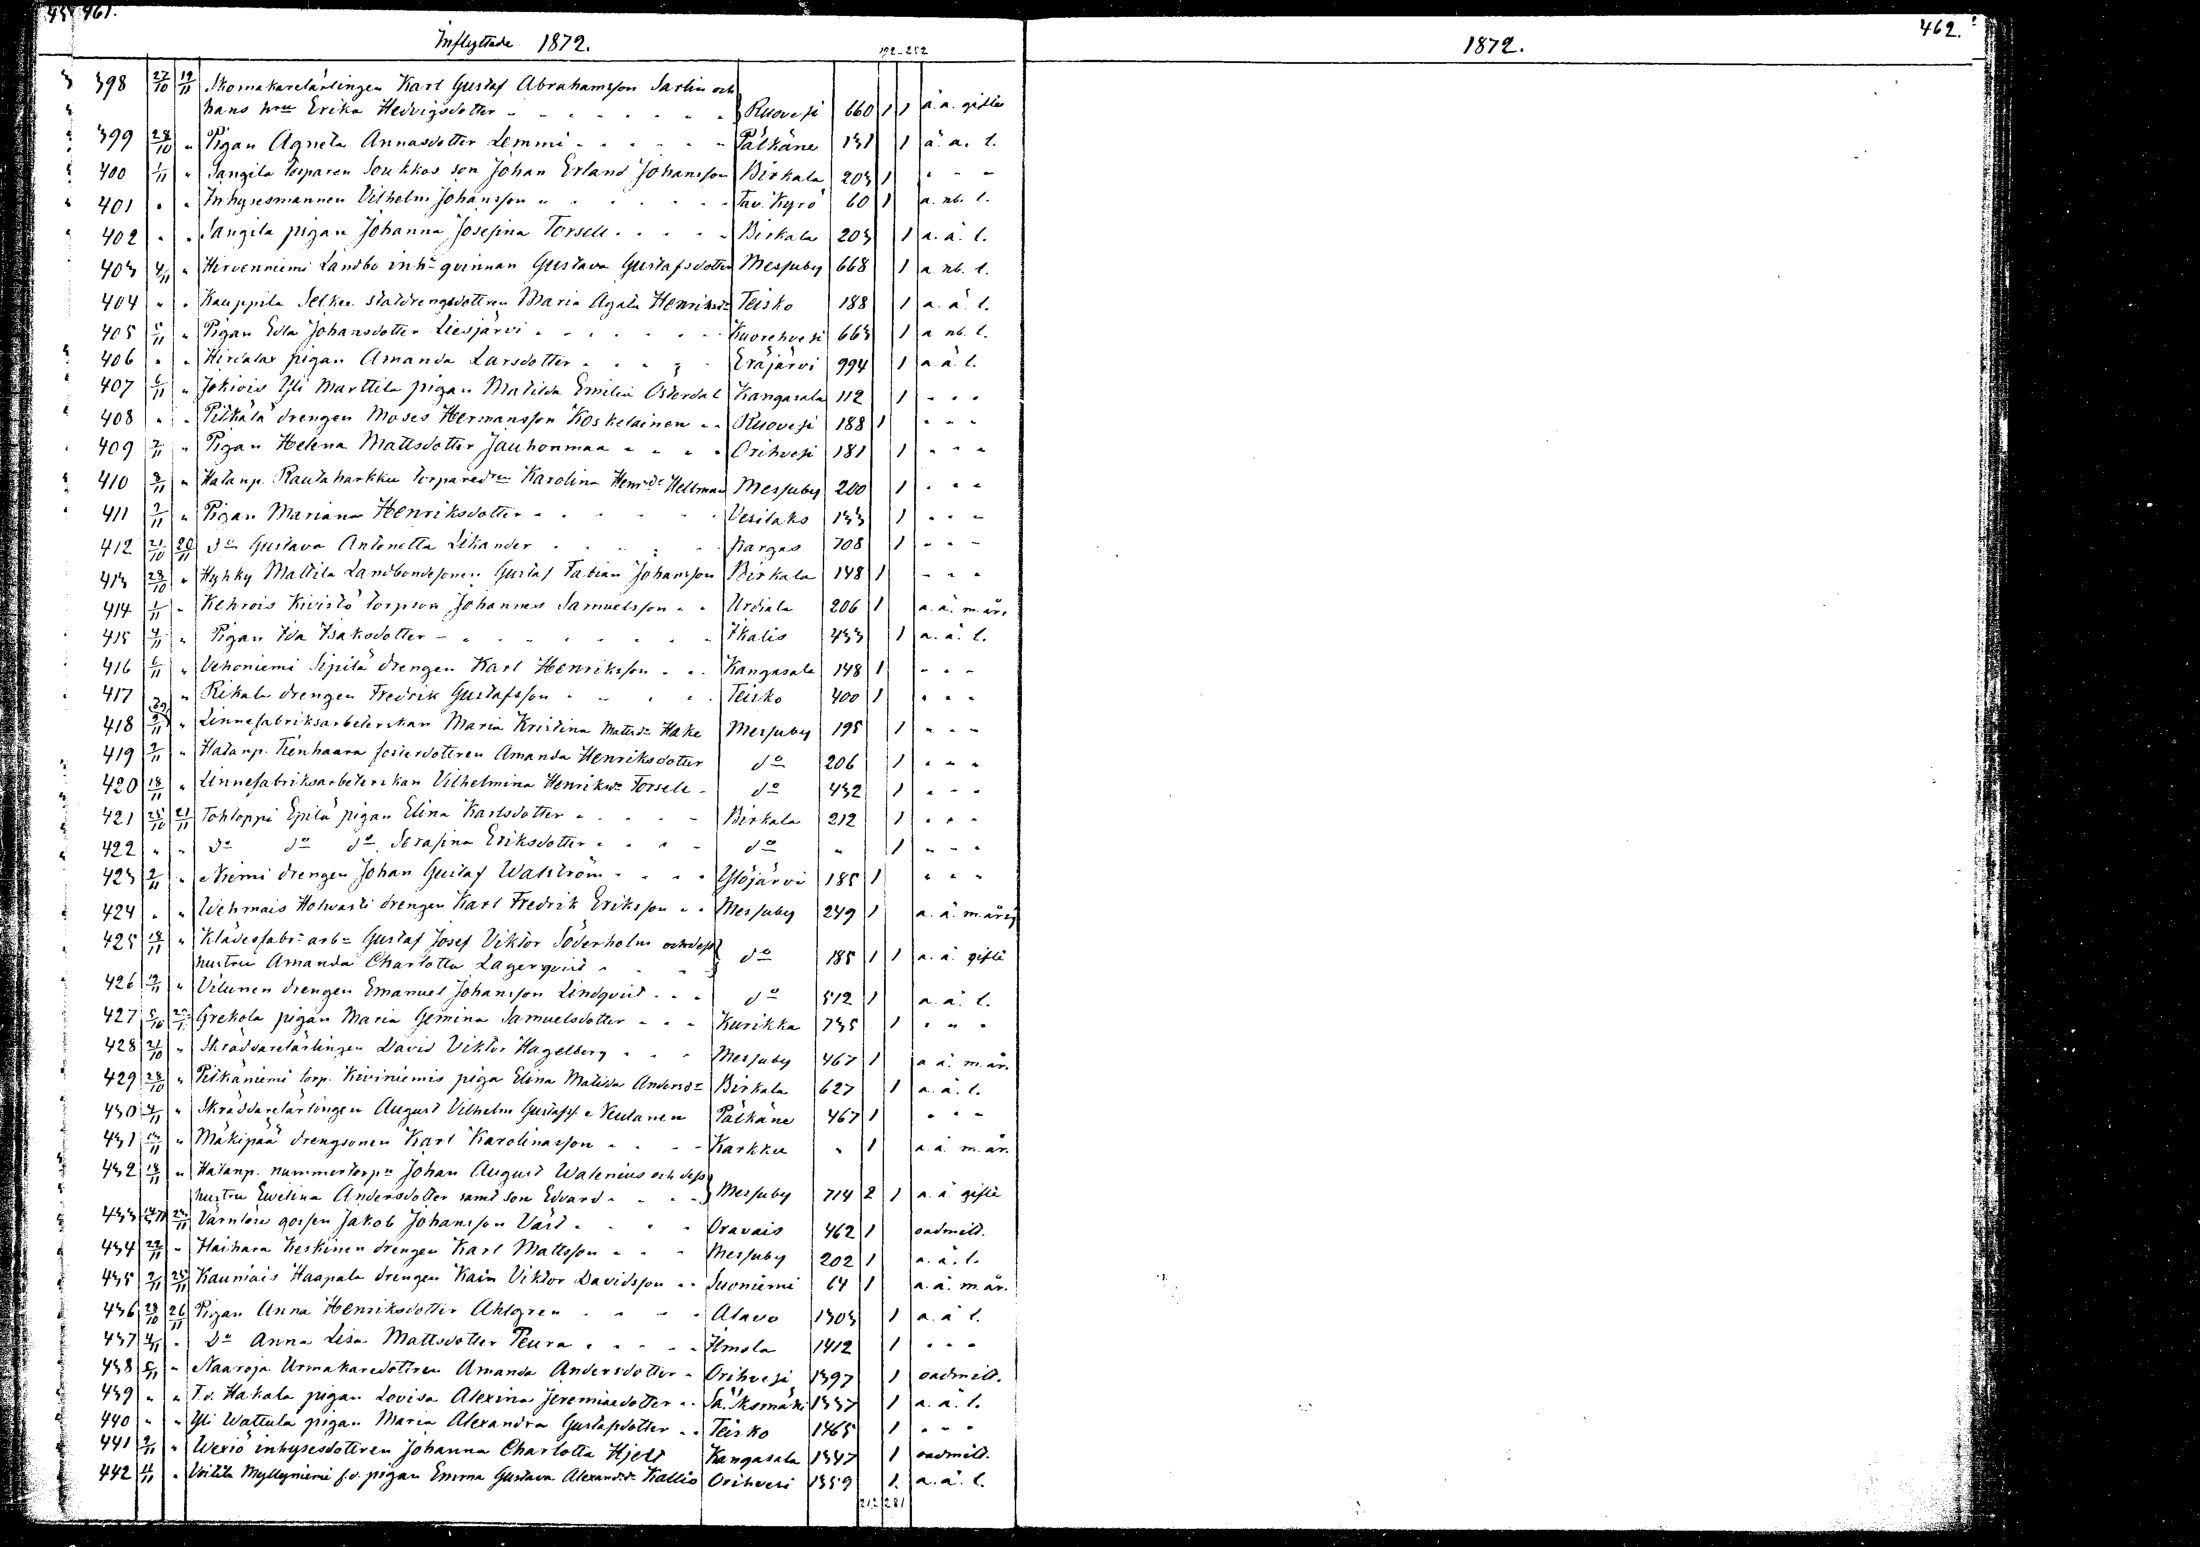 461.
462.
Inflyttade 1872.
192-252
1872.
398 27/10 19/11 Skomakarelärlingen Karl Gustaf Abrahamsson Sarlin och
hans hru Erika Hedvigsdotter Ruovesi 660 1 1 a.ä. gifte
399 28/10 " Pigan Agneta Annasdotter Lemmi Pälkäne 131 1 ä.a. l.
400 1/11 " Sangila torparen Soukkos son Johan Erland Johansson Birkala 203 1 " " "
401 " " Inhysesmannen Vilhelm Johansson Tav. Kyro 60 1 a. nb. l.
402 " " Sangila pigan Johanna Josefina Torsell Birkala 203 1 a.ä. l.
403 4/11 " Hirvenniemi Landbo inhs qvinnan Gustava Gustafsdotter Messuby 668 1 a nb. l.
404 " " Kauppila Selkee statdrengsdottren Maria Agata Henriksdr Teisko 188 1 a.ä. l.
405 5/11 " Pigan Edla Johansdotter Liesjärvi Kuorehvesi 663 1 a nb. l.
406 " " Hirdalax pigan Amanda Larsdotter Eräjärvi 994 1 a ä l.
407 6/11 " Jokiois Yli Marttila pigan Matilda Emilia Österdal Kangasala 112 1 " " "
408 " " Pitkälä drengen Moses Hermansson Koskelainen Ruovesi 188 1 " " "
409 7/11 " Pigan Helena Mattsdotter Jauhonmaa Orihvesi 181 1 " " "
410 8/11 " Hatanp. Rautaharkku torparedrn Karolina Henrdr Hellman Messuby 200 1 " " "
411 9/11 " Pigan Mariana Henriksdotter Vesilaks 133 1 " " "
412 21/10 20/11 do Gustava Antonetta Sikander Pargas 708 1 " " "
413 28/10 " Hyhky Mattila Landbondesonen Gustaf Fabian Johansson Birkala 148 1 " " "
414 1/11 " Kehrois Kivistö torpson Johannes Samuelsson Urdiala 206 1 a.ä. m. är.
415 4/11 " Pigan Ida Isaksdotter Ikalis 433 1 a.ä. l.
416 6/11 " Vehoniemi Sipilä drengen Karl Henriksson Kangasala 148 1 " " "
417 " Rikala drengen Fredrik Gustafsson Teisko 400 1 " " "
418 9/11 " Linnefabriksarbeterskan Maria Kristina Mattsdr Hake Messuby 195 1 " " "
419 9/11 " Hatanp. Tienhaara Amanda Henriksdotter do 206 1 " " "
420 18/11 " Linnefabriksarbeterskan Vilhelmina Henriksdr Torsell do 432 1 " " "
421 25/10 21/11 Tohloppi Epilä pigan Elina Karlsdotter Birkala 212 1 " " "
422 " " do do do Serafina Eriksdotter do " 1 " " "
423 2/11 " Niemi drengen Johan Gustaf Walström Ylöjärvi 185 1 " " "
424 " " Wehmais Holvasti drengen Karl Fredrik Eriksson Messuby 249 1 a.ä. m. är.
425 18/11 " Klädesfabrs arbn Gustaf Josef Viktor Söderholm och dess
hustru Amanda Charlotta Lagerqvist do 185 1 1 a.ä. gifte
426 19/11 " Vilunen drengen Emanuel Johansson Lindqvist do 512 1 a.ä. l.
427 Grekola pigan Maria Gemina Samuelsdotter Kurikka 735 1 " " "
428 21/10 " Skräddarelärlingen David Viktor Hagelberg Messuby 467 1 a ä. m. är.
429 28/10 " Pitkäniemi torp. Kiviniemis piga Elina Matilda Andersdr Birkala 627 1 a.ä. l.
430 4/11 " Skräddarelärlingen August Vilhelm Gustafss. Neulanen Pälkäne 467 1 " " "
431 " Mäkipää drengsonen Karl Karolinasson Karkku " 1 a.ä. m. är.
432 18/11 " Hatanp. nummertorpn Johan August Walenius och dess
hustru Ewelina Andersdotter samt son Edvard Messuby 714 2 1 a.ä. gifte
433 Värnlöse gossen Jakob Johansson Värd Oravais 462 1 oadmitt.
434 22/11 " Haihara Keskinen drengen Karl Mattsson Messuby 202 1 a.ä. l.
435 2/11 25/11 Kauniais Haapala drengen Kain Viktor Davidsson Suoniemi 64 1 a.ä. m. är.
436 23/10 26/11 Pigan Anna Henriksdotter Ahlgren Alavo 1303 1 a.ä l.
437 4/11 " Do Anna Lisa Mattsdotter Peura Ilmola 1412 1 " " "
438 5/11 " Naaroja Urmakaredottren Amanda Andersdotter Orihvesi 1397 1 oadmitt.
439 " " T.d. Hakala pigan Lovisa Alexina Jeremiaedotter Sääksmäki 1337 1 a.ä. l.
440 " " Yli Wattula pigan Maria Alexandra Gustafsdotter Teisko 1465 1 " " "
441 9/11 " Wexiö inhysesdottren Johanna Charlotta Hjelt Kangasala 1347 1 oadmitt.
442 11/11 " Voitila Myllyniemi f.d. pigan Emma Gustava Alexandsdr Kallio Orihvesi 1359 1 a.ä. l.
212 281